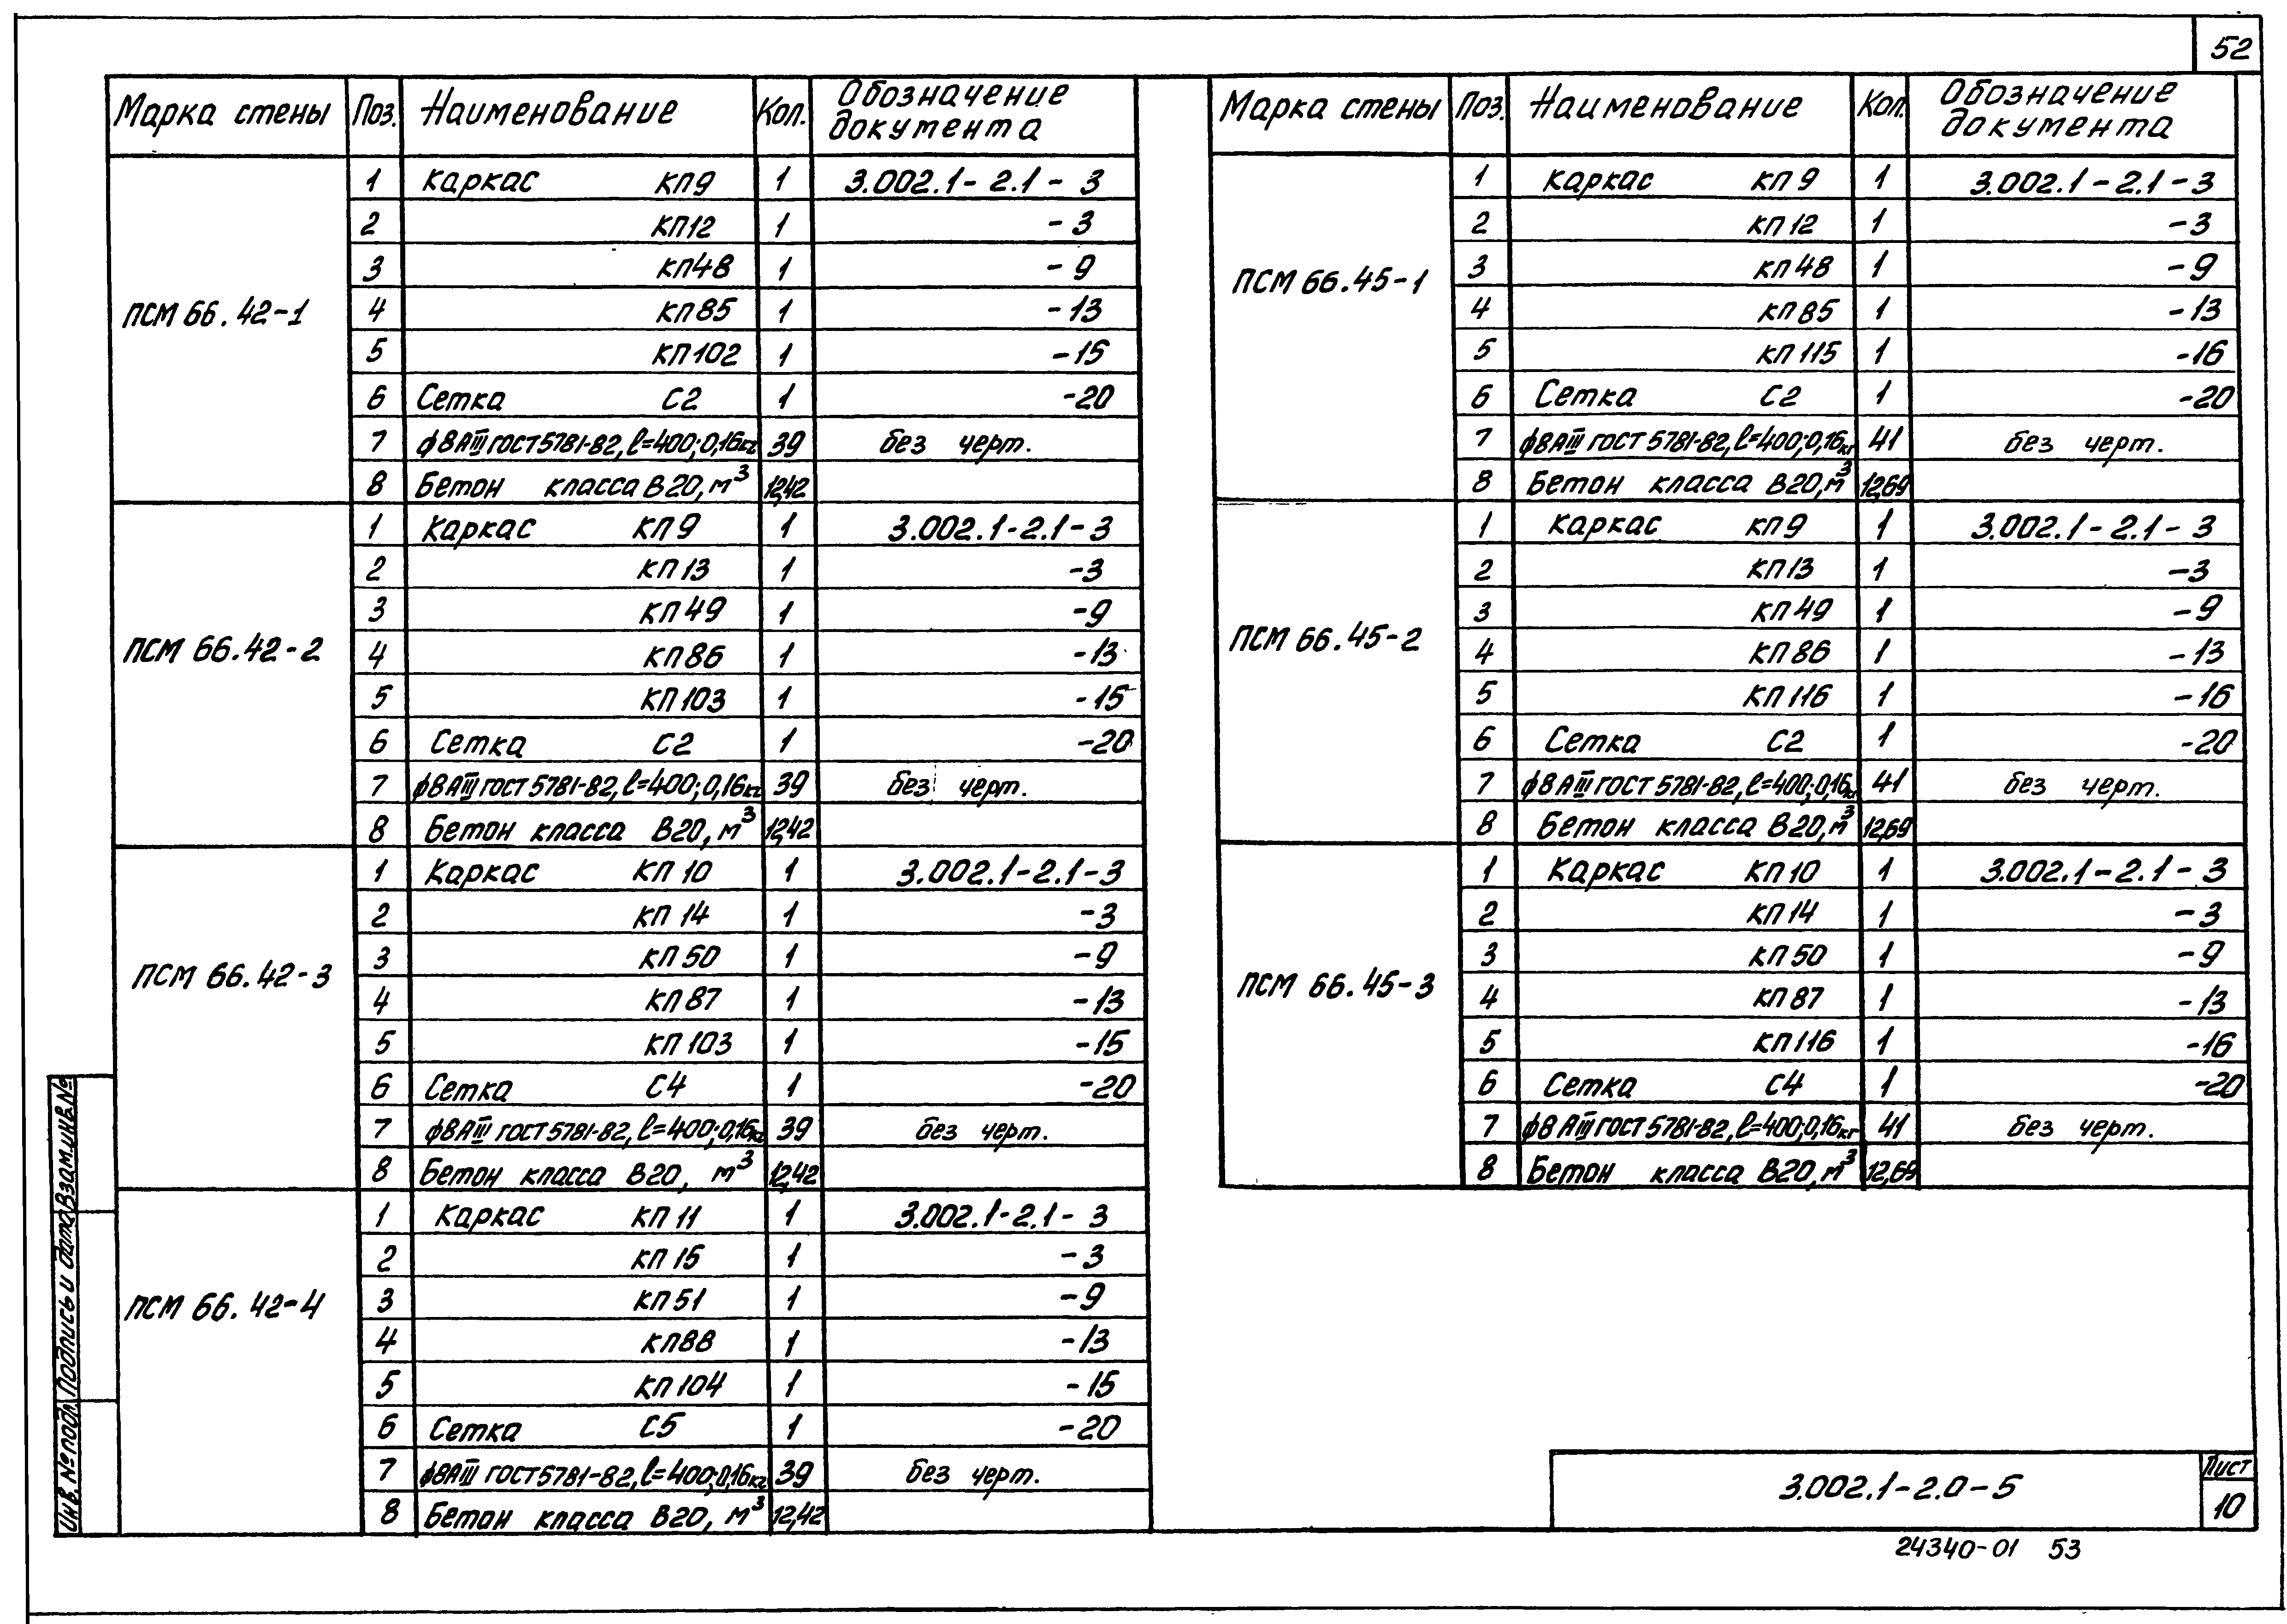 52
Марка стены Поз. Наименование Кол. Обозначение документа
ПСМ 66.42-1
1 Каркас КП9 1 3.002.1-2.1-3
2 КП12 1 -3
3 КП48 1 -9
4 КП85 1 -13
5 КП102 1 -15
6 Сетка С2 1 -20
7 ф8АIII ГОСТ 5781-82, l=400; 0,16кг 39 без черт.
8 Бетон класса В20, м³ 12,42
ПСМ 66.42-2
1 Каркас КП9 1 3.002.1-2.1-3
2 КП13 1 -3
3 КП49 1 -9
4 КП86 1 -13
5 КП103 1 -15
6 Сетка С2 1 -20
7 ф8АIII ГОСТ 5781-82, l=400; 0,16кг 39 без черт.
8 Бетон класса В20, м³ 12,42
ПСМ 66.42-3
1 Каркас КП10 1 3.002.1-2.1-3
2 КП14 1 -3
3 КП50 1 -9
4 КП87 1 -13
5 КП103 1 -15
6 Сетка С4 1 -20
7 ф8АIII ГОСТ 5781-82, l=400; 0,16кг 39 без черт.
8 Бетон класса В20, м³ 12,42
ПСМ 66.42-4
1 Каркас КП11 1 3.002.1-2.1-3
2 КП15 1 -3
3 КП51 1 -9
4 КП88 1 -13
5 КП104 1 -15
6 Сетка С5 1 -20
7 ф8АIII ГОСТ 5781-82, l=400; 0,16кг 39 без черт.
8 Бетон класса В20, м³ 12,42
Марка стены Поз. Наименование Кол. Обозначение документа
ПСМ 66.45-1
1 Каркас КП9 1 3.002.1-2.1-3
2 КП12 1 -3
3 КП48 1 -9
4 КП85 1 -13
5 КП115 1 -16
6 Сетка С2 1 -20
7 ф8АIII ГОСТ 5781-82, l=400; 0,16кг 41 без черт.
8 Бетон класса В20, м³ 12,69
ПСМ 66.45-2
1 Каркас КП9 1 3.002.1-2.1-3
2 КП13 1 -3
3 КП49 1 -9
4 КП86 1 -13
5 КП116 1 -16
6 Сетка С2 1 -20
7 ф8АIII ГОСТ 5781-82, l=400; 0,16кг 41 без черт.
8 Бетон класса В20, м³ 12,69
ПСМ 66.45-3
1 Каркас КП10 1 3.002.1-2.1-3
2 КП14 1 -3
3 КП50 1 -9
4 КП87 1 -13
5 КП116 1 -16
6 Сетка С4 1 -20
7 ф8АIII ГОСТ 5781-82, l=400; 0,16кг 41 без черт.
8 Бетон класса В20, м³ 12,69
Инв. № подл. Подпись и дата Взам.инв.№
3.002.1-2.0-5
Лист
10
24340-01 53